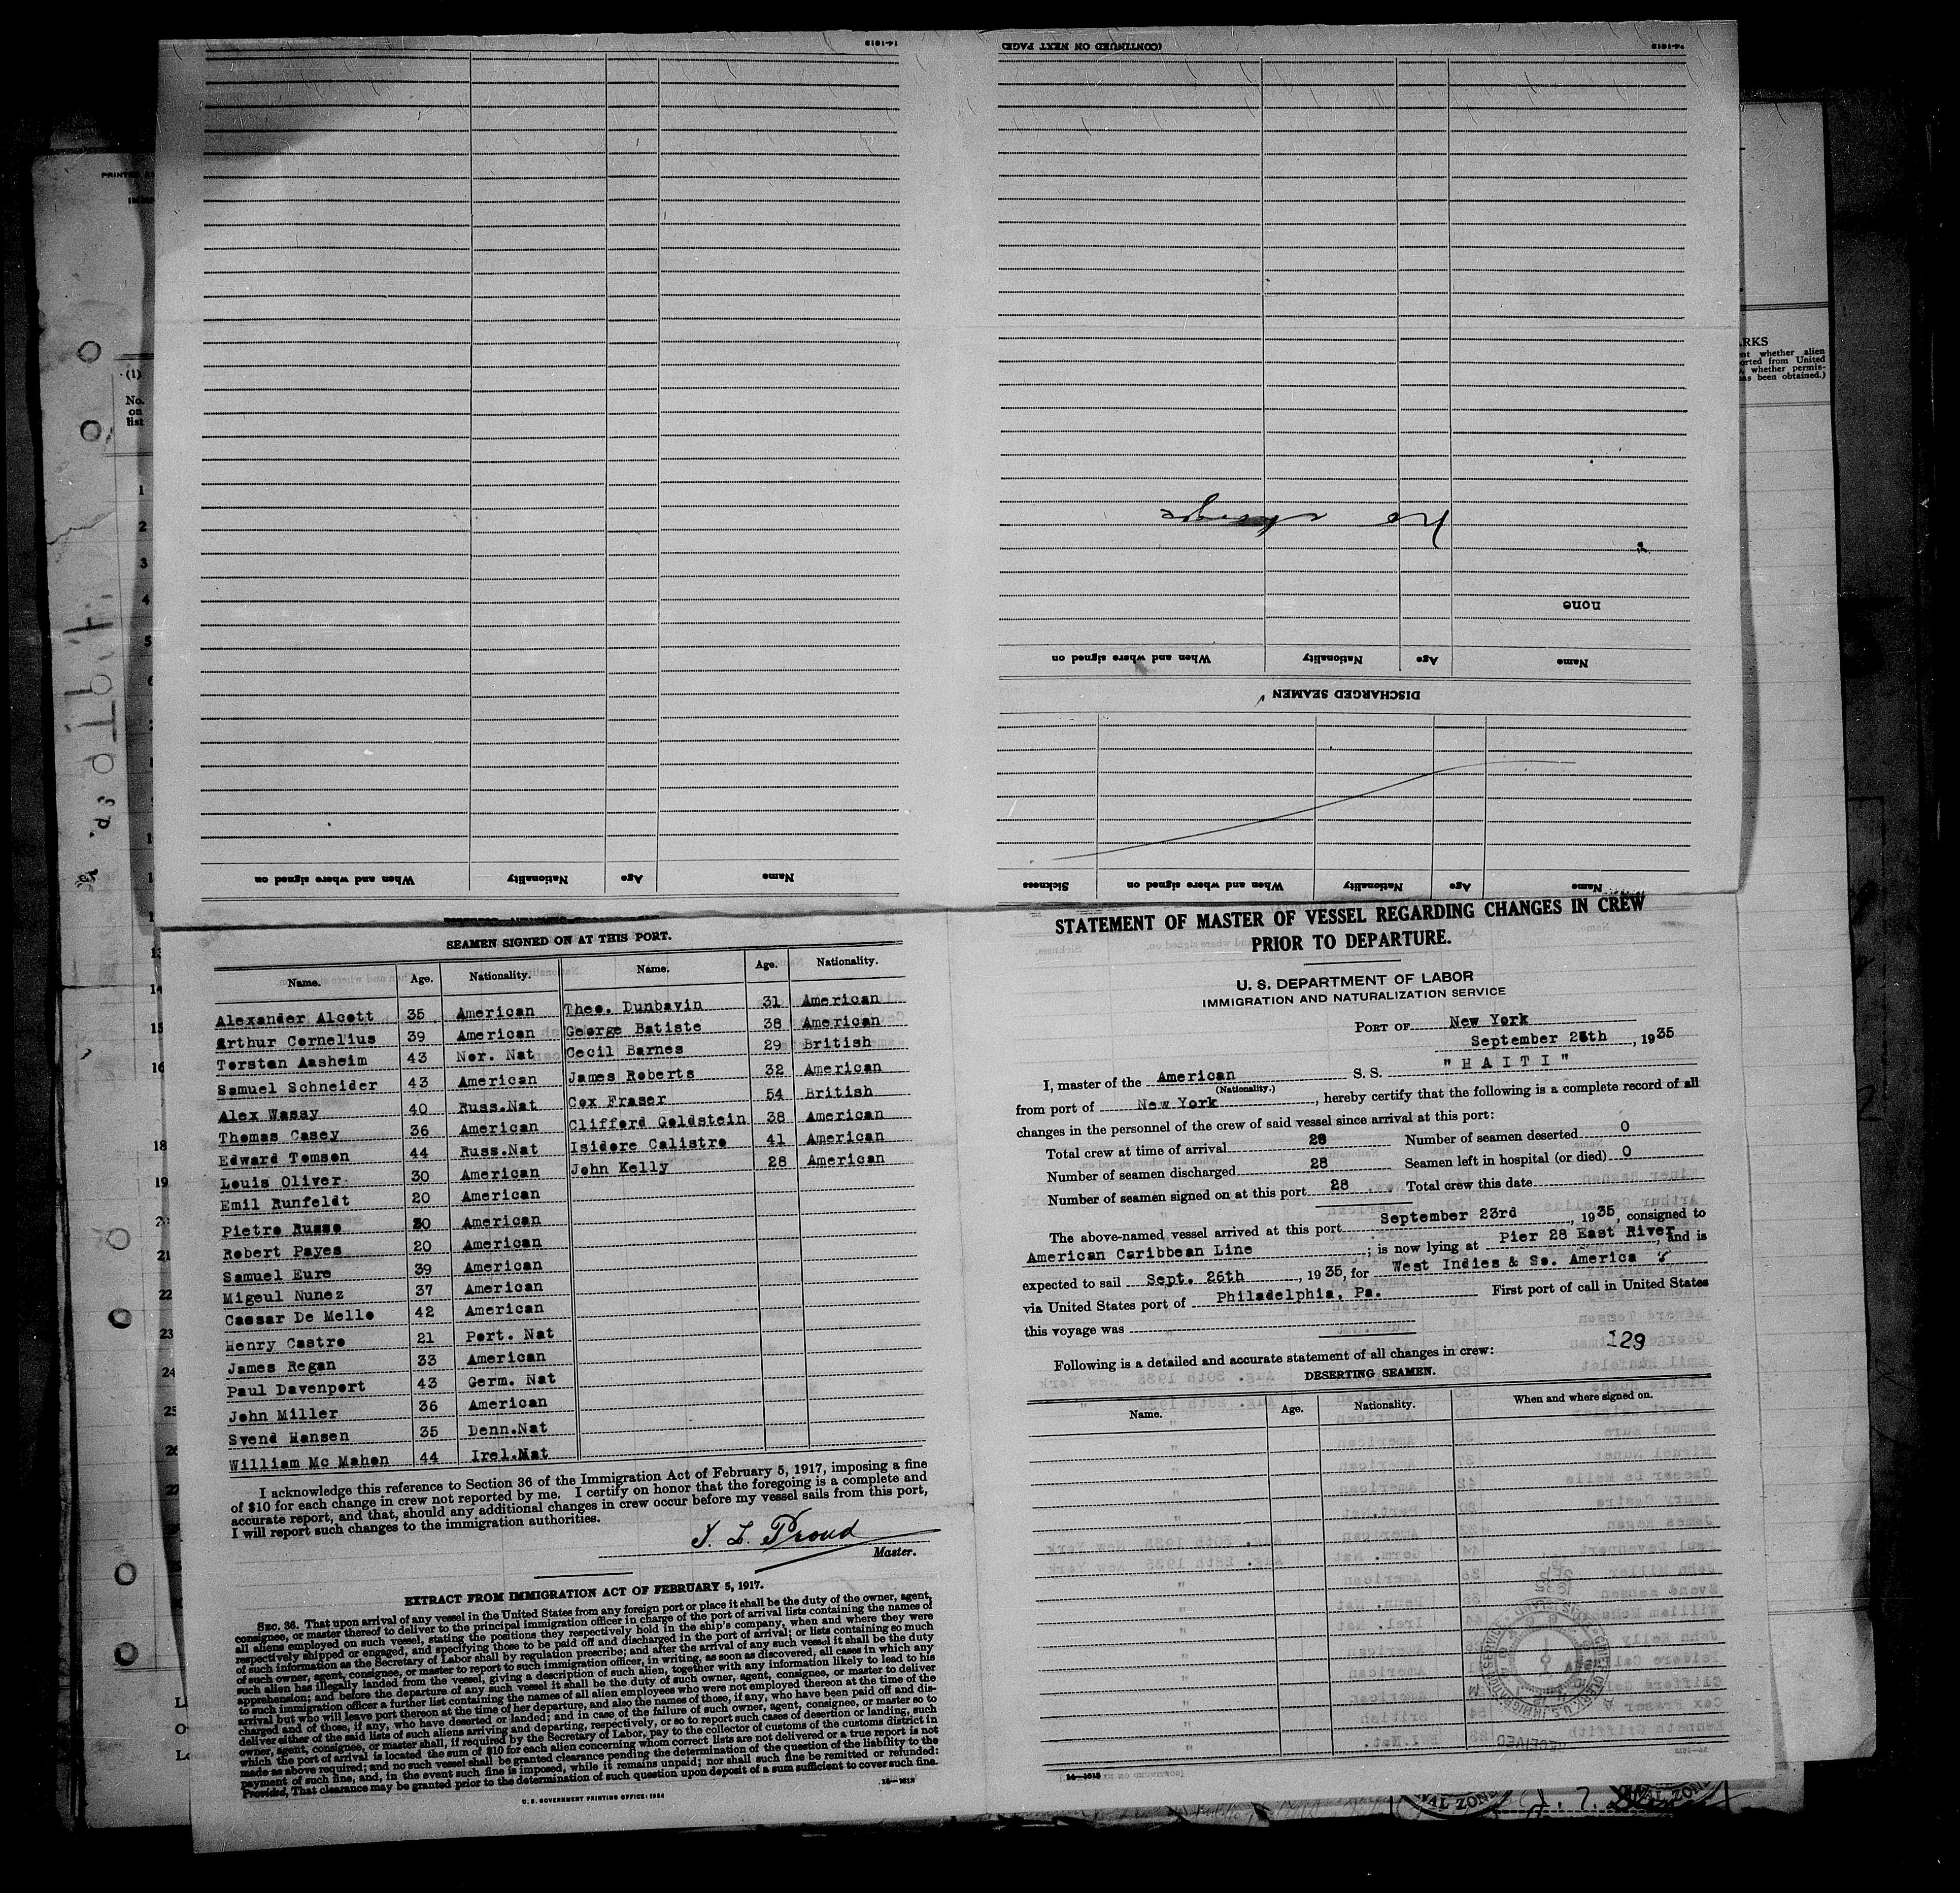 14-1613
(CONTINUED ON NEXT PAGE)
14-1613
No change
none
Name
Age
Nationality
When and where signed on
DISCHARGED SEAMEN
Name
Age
Nationality
When and where signed on
Name
Age
Nationality
When and where signed on
Sickness
PRINTED
(1)
No.
on
list
ARKS
whether alien
ported from United
whether permis-
has been obtained.)
SEAMEN SIGNED ON AT THIS PORT.
Name. Age. Nationality. Name. Age. Nationality.
Alexander Alcott 35 American Theo. Dunbavin 31 American
Arthur Cornelius 39 American George Batiste 38 American
Torsten Aasheim 43 Nor. Nat Cecil Barnes 29 British
Samuel Schneider 43 American James Roberts 32 American
Alex Wassy 40 Russ.Nat Cox Fraser 54 British
Thomas Casey 36 American Clifford Goldstein 38 American
Edward Tomson 44 Russ.Nat Isidore Calistro 41 American
Louis Oliver 30 American John Kelly 28 American
Emil Runfeldt 20 American
Pietro Russo 30 American
Robert Payes 20 American
Samuel Eure 39 American
Migeul Nunez 37 American
Caesar De Mello 42 American
Henry Castro 21 Port. Nat
James Regan 33 American
Paul Davenport 43 Germ. Nat
John Miller 36 American
Svend Hansen 35 Denn.Nat
William Mc Mahon 44 Irel.Nat
I acknowledge this reference to Section 36 of the Immigration Act of February 5, 1917, imposing a fine
of $10 for each change in crew not reported by me. I certify on honor that the foregoing is a complete and
accurate report, and that, should any additional changes in crew occur before my vessel sails from this port,
I will report such changes to the immigration authorities.
Proud
Master.
EXTRACT FROM IMMIGRATION ACT OF FEBRUARY 5, 1917.
SEC. 36. That upon arrival of any vessel in the United States from any foreign port or place it shall be the duty of the owner, agent,
consignee, or master thereof to deliver to the principal immigration officer in charge of the port of arrival lists containing the names of
all aliens employed on such vessel, stating the positions they respectively hold in the ship's company, when and where they were
respectively shipped or engaged, and specifying those to be paid off and discharged in the port of arrival; or lists containing so much
of such information as the Secretary of Labor shall by regulation prescribe; and after the arrival of any such vessel it shall be the duty
of such owner, agent, consignee, or master to report to such immigration officer, in writing, as soon as discovered, all cases in which any
such alien has illegally landed from the vessel, giving a description of such alien, together with any information likely to lead to his
apprehension; and before the departure of any such vessel it shall be the duty of such owner, agent, consignee, or master to deliver
to such immigration officer a further list containing the names of all alien employees who were not employed thereon at the time of the
arrival but who will leave port thereon at the time of her departure, and also the names of those, if any, who have been paid off and dis-
charged and of those, if any, who have deserted or landed; and in case of the failure of such owner, agent, consignee, or master so to
deliver either of the said lists of such aliens arriving and departing, respectively, or so to report such cases of desertion or landing, such
owner, agent, consignee, or master shall, if required by the Secretary of Labor, pay to the collector of customs of the customs district in
which the port of arrival is located the sum of $10 for each alien concerning whom correct lists are not delivered or a true report is not
made as above required; and no such vessel shall be granted clearance pending the determination of the question of the liability to the
payment of such fine, and, in the event such fine is imposed, while it remains unpaid; nor shall such fine be remitted or refunded:
Provided, That clearance may be granted prior to the determination of such question upon deposit of a sum sufficient to cover such fine.
14—1613
U. S. GOVERNMENT PRINTING OFFICE: 1934
STATEMENT OF MASTER OF VESSEL REGARDING CHANGES IN CREW
PRIOR TO DEPARTURE.
U. S. DEPARTMENT OF LABOR
IMMIGRATION AND NATURALIZATION SERVICE
PORT OF New York
September 25th, 1935
I, master of the American S. S. "HAITI"
(Nationality.)
from port of New York, hereby certify that the following is a complete record of all
changes in the personnel of the crew of said vessel since arrival at this port:
Total crew at time of arrival 28 Number of seamen deserted 0
Number of seamen discharged 28 Seamen left in hospital (or died) 0
Number of seamen signed on at this port 28 Total crew this date
The above-named vessel arrived at this port September 23rd, 1935, consigned to
American Caribbean Line; is now lying at Pier 28 East River, and is
expected to sail Sept. 26th, 1935, for West Indies & So. America
via United States port of Philadelphia, Pa. First port of call in United States
this voyage was
129
Following is a detailed and accurate statement of all changes in crew:
DESERTING SEAMEN.
Name. Age. Nationality. When and where signed on.
14—1613